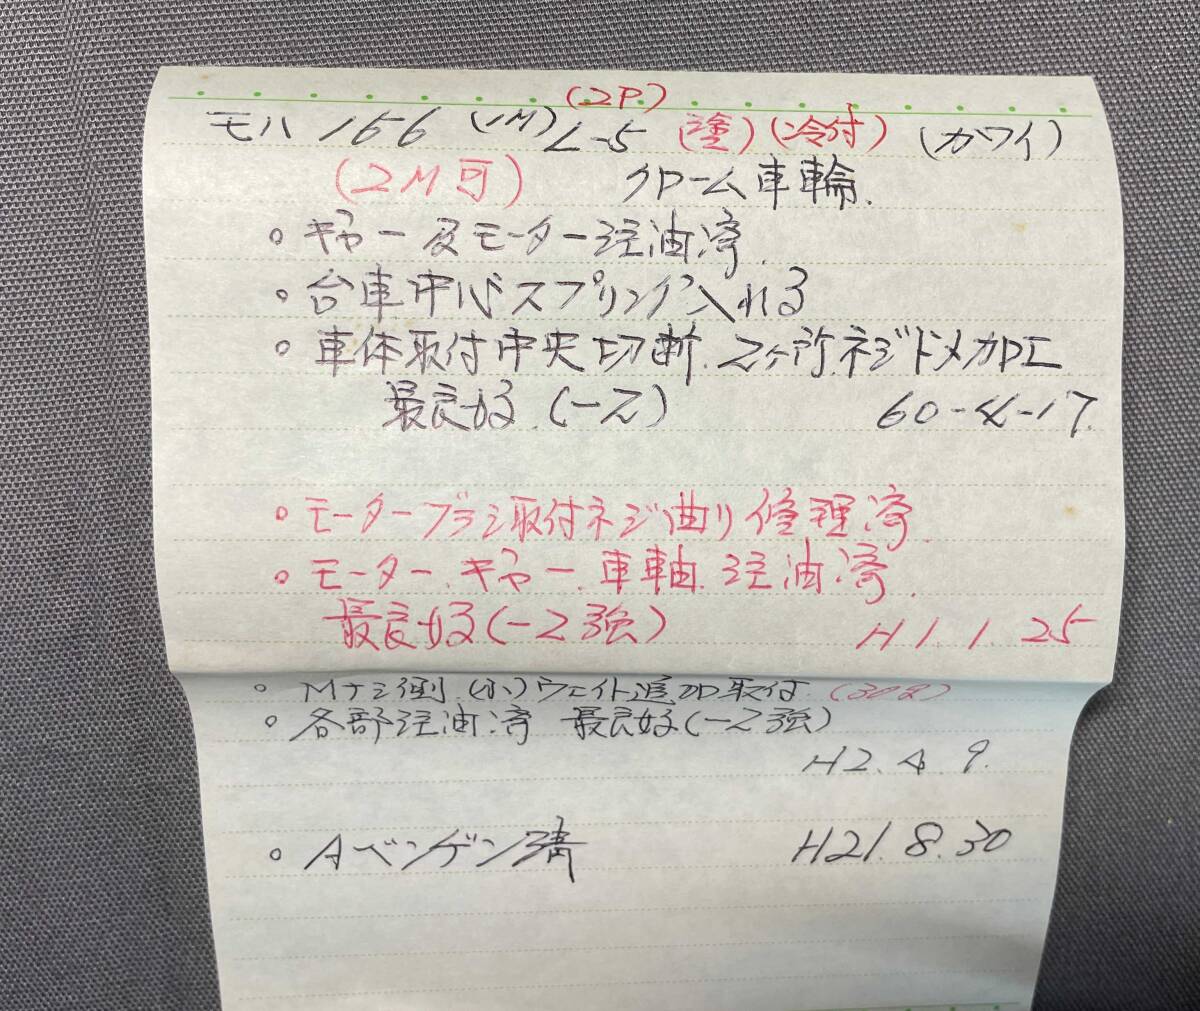 (2P)
モハ 156 (1M) L-5 (塗) (冷付) (カワイ)
(2M可) クローム車輪.
。ギヤー及モーター注油済.
。台車中心スプリング入れる
。車体取付中央切断.2ヶ所ネジドメ加工
最良好.(-2) 60-4-17.
。モーターブラシ取付ネジ曲り修理済.
。モーター.ギヤー.車軸.注油済.
最良好(-2強) H1.1.25
。Mナシ側(小)ウェイト追加取付.
。各部注油済 最良好(-2強)
H2.4.9.
。Aベンゲン済 H21.8.30